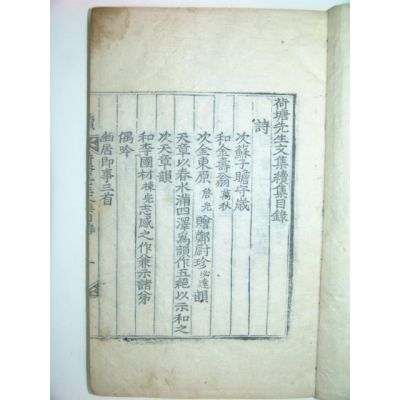 荷塘先生文集續集目錄
詩
次蘇子瞻守歲
和金壽翁萬秋
次金東原詹光贈鄭尉珍必達韻
天章以春水滿四澤爲韻作五絕以示和之
次天章韻
和李國材棟完志感之作兼示諸弟
偶吟
幽居即事三首